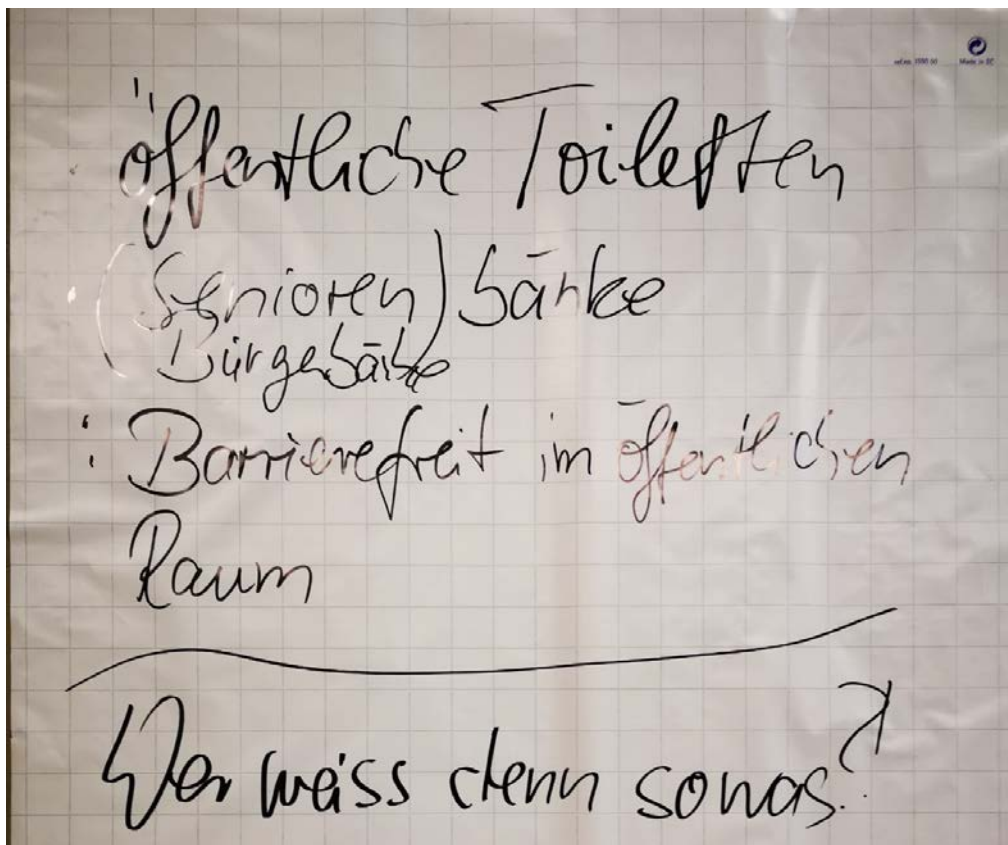 ref.no. 1990 50
Made in EC
öffentliche Toiletten
(Senioren) bänke
Bürgerbänke
: Barrierefreit im öffentlichen
Raum
Wer weiss denn sowas?